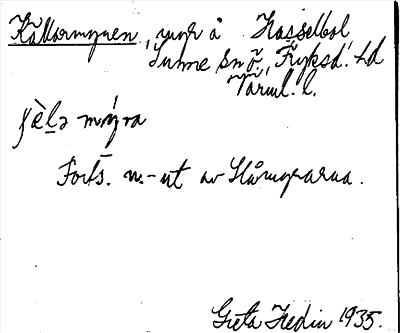 Källarmyren, myr å Hasselbol
Sunne sn ö. Fryksd. hd
Värml. l.
myra
Forts. n.-ut av Slåmyrarna.
Greta Hedin 1935.